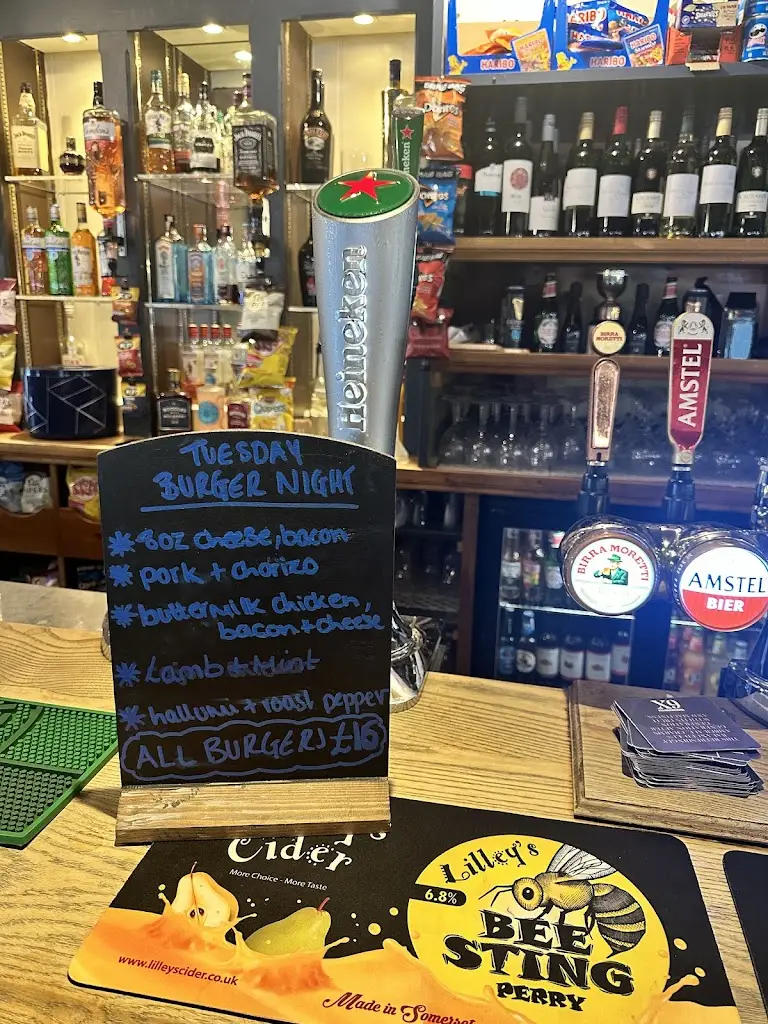 HARIBO
HARIBO
HARIBO
Doritos
Heineken
Heineken
BIRRA
MORETTI
AMSTEL
TUESDAY
BURGER NIGHT
* 8oz cheese, bacon
* pork + chorizo
* buttermilk chicken,
bacon + cheese
* Lamb + Mint
* halloumi + roast pepper
ALL BURGERS £16
BIRRA MORETTI
AMSTEL
BIER
X9
Cider
More Choice - More Taste
www.lilleyscider.co.uk
Made in Somerset
Lilley's
6.8%
BEE
STING
PERRY